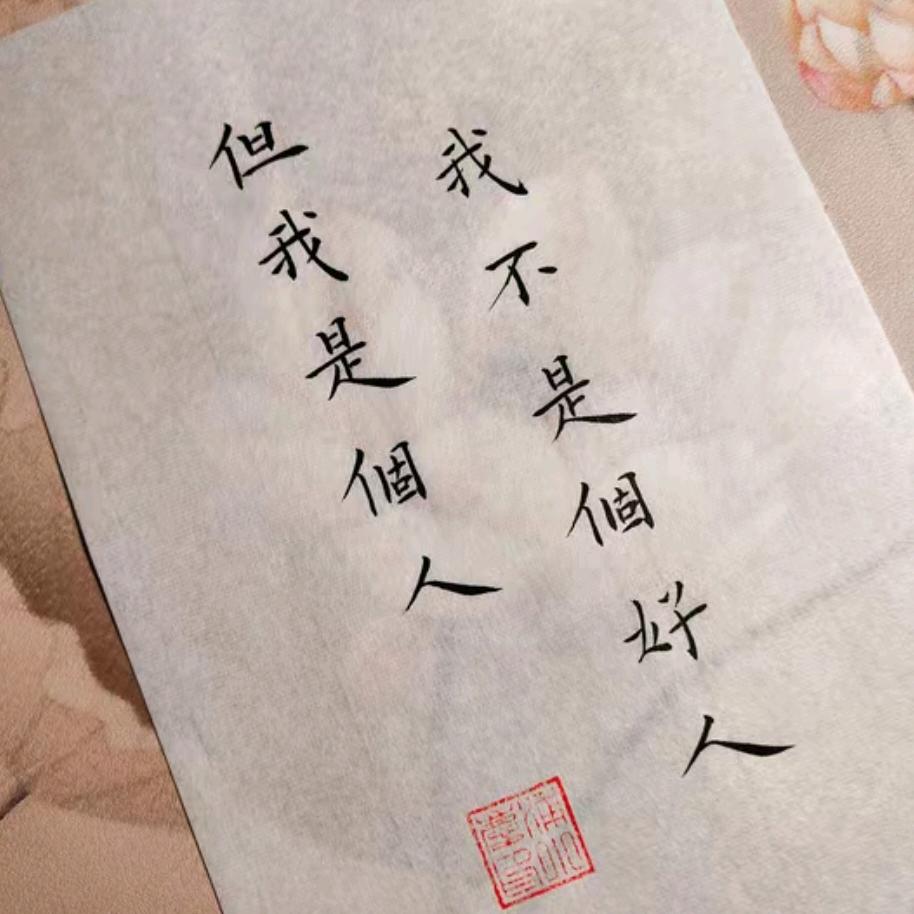 我不是個好人
但我是個人